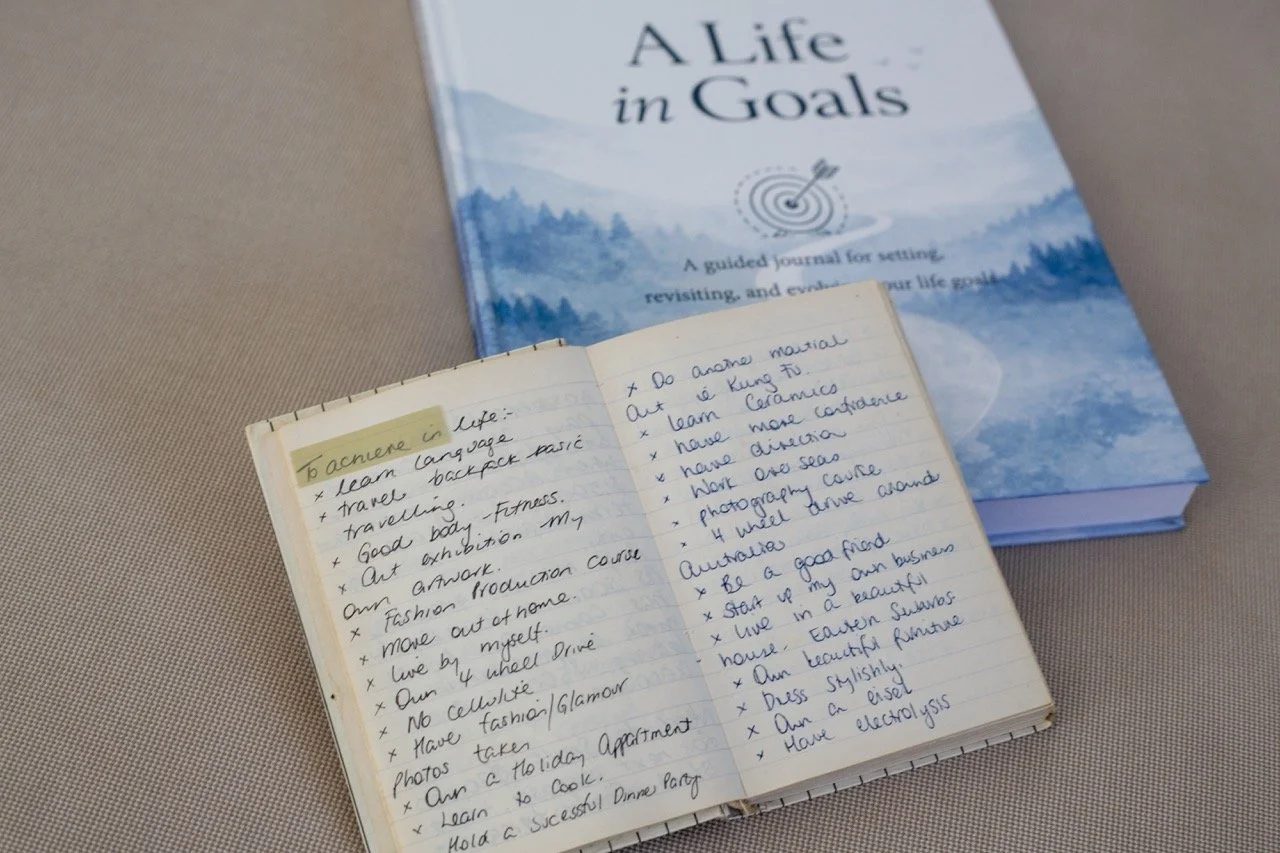 A Life
in Goals
A guided journal for setting,
revisiting, and evolving your life goals
To achieve in life:-
x learn language
x travel backpack basic
travelling.
x Good body - Fitness.
x Art exhibition My
Own artwork.
x Fashion Production Course
x Move out of home.
x Live by myself.
x Own 4 wheel Drive
No cellulite
x Have fashion/Glamour
Photos taken
x Own a Holiday Appartment
x Learn to Cook.
Hold a Sucessful Dinner Party
x Do another martial
Art ie Kung Fu.
x learn Ceramics
x have more confidence
x have direction
x Work overseas
x photography course
x 4 wheel drive around
Australia
x Be a good friend
x Start up my own business
x live in a beautiful
house. Eastern Suburbs
x Own beautiful furniture
x Dress stylishly.
x Own a eisel
x Have electrolysis